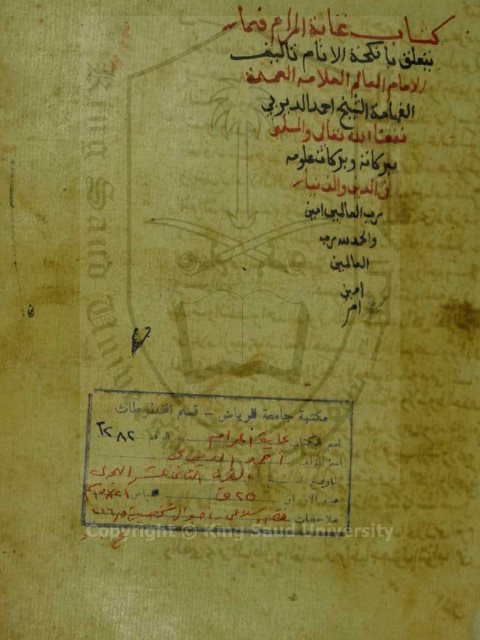 كتاب غاية المرام فيما
يتعلق بانكحة الانام تاليف
الامام العالم العلامه العمدة
الفهامة الشيخ احمد الديربي
نفعنا الله تعالى والمسلمين
ببركاته وبركات علومه
في الدين والدنيا
رب العالمين امين
والحمد لله رب
العالمين
امين
مكتبة جامعة الرياض - قسم المخطوطات
اسم الكتاب غاية المرام الرقم ٢٢٨٢
اسم المؤلف احمد الديربي
تاريخ القرن الثاني عشر الهجري
عدد الاوراق ٢٥ ق
ملاحظات
Copyright © King Saud University